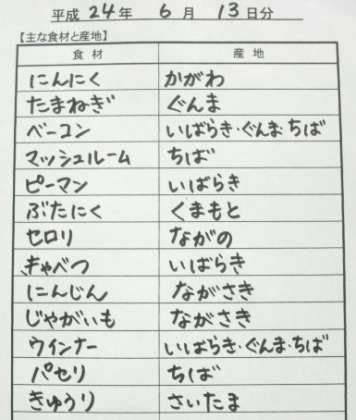 平成 24 年 6 月 13 日分
【主な食材と産地】
食材 産地
にんにく かがわ
たまねぎ ぐんま
ベーコン いばらき・ぐんま・ちば
マッシュルーム ちば
ピーマン いばらき
ぶたにく くまもと
セロリ ながの
きゃべつ いばらき
にんじん ながさき
じゃがいも ながさき
ウインナー いばらき・ぐんま・ちば
パセリ ちば
きゅうり さいたま